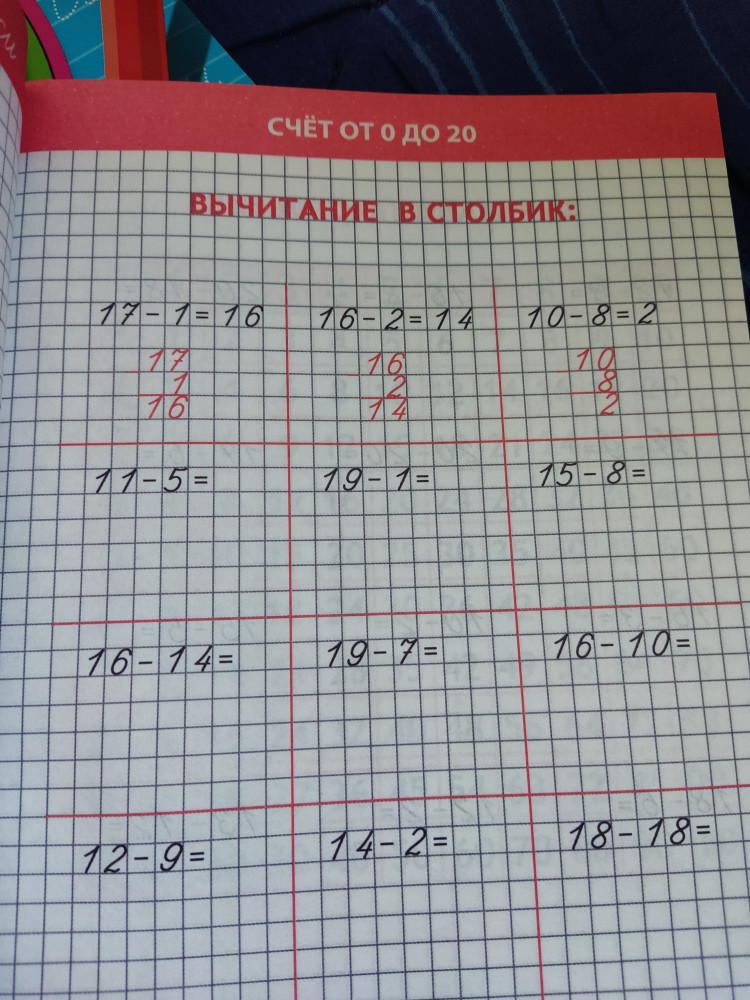 СЧЁТ ОТ 0 ДО 20
ВЫЧИТАНИЕ В СТОЛБИК:
17-1=16 16-2=14 10-8=2
17 16 10
- 1 - 2 - 8
16 14 2
11-5= 19-1= 15-8=
16-14= 19-7= 16-10=
12-9= 14-2= 18-18=